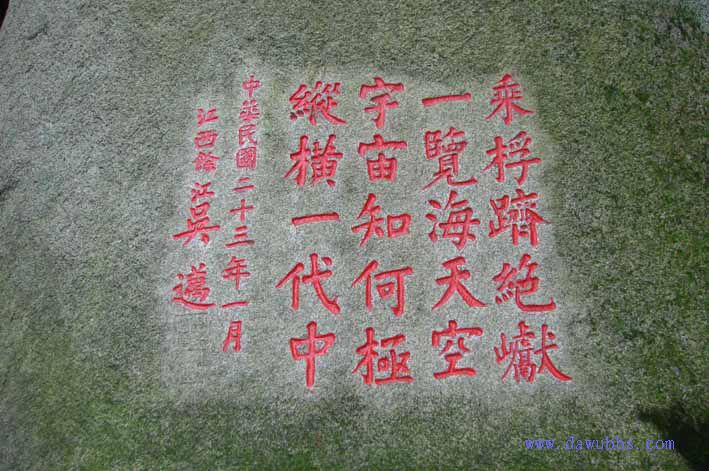 乘桴躋絶巘
一覽海天空
宇宙知何極
縱橫一代中
中華民國二十三年一月
江西餘江吳邁
www.dawubbs.com